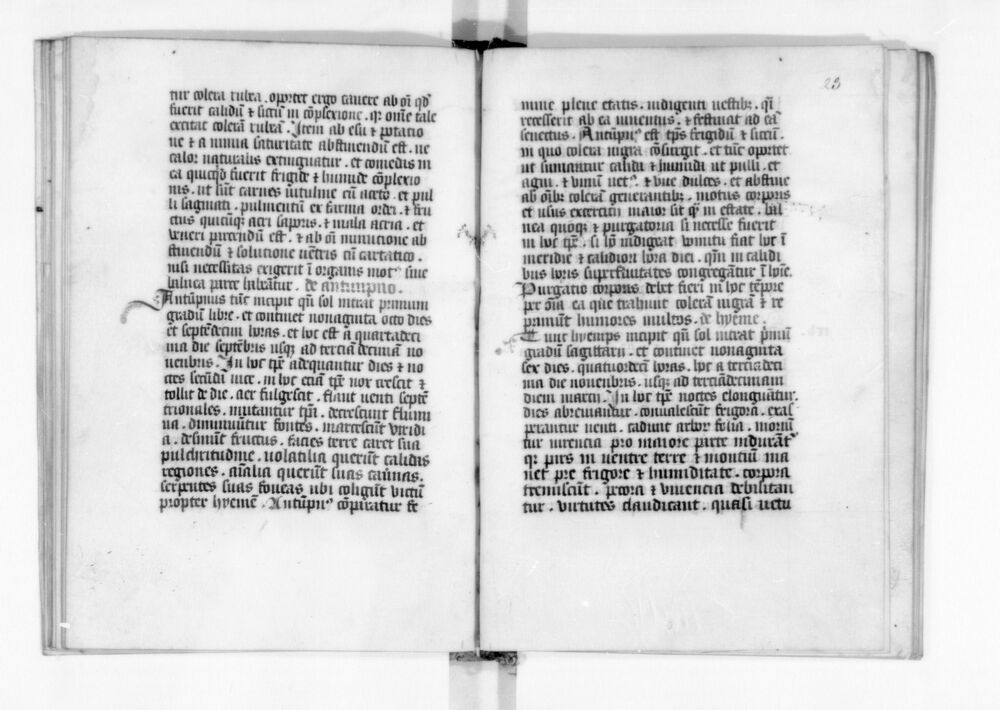 tur colera rubea . oportet ergo cauere ab oī qḋ
fuerit calidū ⁊ siccū in cōplexione . qꝛ om̄e tale
excitat colerā rubeā . Item ab esu ⁊ potatio
ne ⁊ a nimia saturitate abstinendū est . ne
calor naturalis extinguatur . et comedas in
ea quicqḋ fuerit frigide ⁊ humide cōplexio
nis . ut sūt carnes uituline cū aceto . et pul
li saginati . pulmentū ex farina ordei . ⁊ fru
ctus quicūqꝫ acri saporis . ⁊ mala acria . et
veneri parcendū est . ⁊ ab oī minutione ab
stinendū ⁊ solutione uētris cū cartatico .
nisi necessitas exigerit ī organis motꝰ siue
balnea parce habeātur . de antumpno .
Antūpnus tūc incipit qn̄ sol intrat primum
gradū libre . et continet nonaginta octo dies
et septēdecim horas . et hoc est a quartadeci
ma die septēbris usqꝫ ad terciā decimā no
uenbris . In hoc tp̄e adequantur dies ⁊ no
ctes secūdū uice . in hoc eciā tp̄e nox crescit ⁊
tollit de die . aer fulgescit . flant uenti septē
trionales . mutantur tp̄a . decrescunt flumi
na . diminuūtur fontes . marcescūt viridi
a . desinūt fructus . facies terre caret sua
pulchritudine . volatilia querūt calidas
regiones . aīalia querūt suas cauīnas .
serpentes suas foueas ubi coligūt victū
propter hyemē . Antūpnꝰ cōparatur fe
mine plene etatis . indigenti uestibꝫ . qn̄
recesserit ab ea iuuentus . ⁊ festinat ad eā
senectus . Antūpnꝰ est tp̄s frigidū ⁊ siccū .
in quo colera nigra cōsurgit . et tūc oportet
ut sumantur calida ⁊ humida ut pulli . et
agni . ⁊ vinū uetꝰ . ⁊ vue dulces . et abstine
ab oībꝫ colerā generantibꝫ . motus corporis
et usus exercitii maior sit qᷓ in estate . bal
nea quoqꝫ ⁊ purgatoria si necesse fuerit
in hoc tp̄e . si hō indigeat vomitu fiat hoc ī
meridie ⁊ calidiori hora diei . qn̄ in calidi
bus horis suprfluitates congregātur ī hoīe .
Purgatio corporis debet fieri in hoc tēpore
per oīa ea que trahunt colerā nigrā ⁊ re
primūt humores multos . de hyeme .
Tunc hyemps incipit qn̄ sol intrat p̄mū
gradū sagittarii . et continet nonaginta
sex dies . quatuordecī horas . hoc a terciadeci
ma die nouenbris . usqꝫ ad terciādecimam
diem marcii . In hoc tp̄e noctes elonguātur .
dies abreuiantur . conualescūt frigora . exas
perantur uenti . cadunt arborꝫ folia . moriū
tur uirencia pro maiore parte indurātꝰ
qꝛ pars in uentre terre ⁊ montiū ma
net pre frigore ⁊ humiditate . corpora
tremiscūt . pecora ⁊ viuencia debilitan
tur . virtutes claudicant . quasi uetu